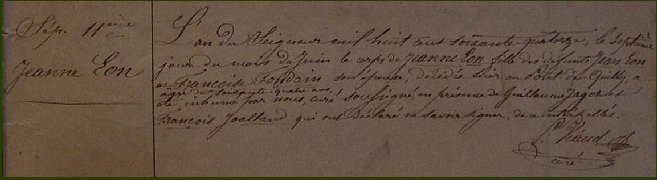 Sép. 11ème
Jeanne Eon
L'an du Seigneur mil huit cent soixante quatorze, le septième
jour du mois de Juin le corps de Jeanne Eon fille de défunts Jean Eon
et Françoise Joudain son épouse, décédée hier au Pont du Guilly, a
agée de soixante quatre ans,
été inhumé par nous, curé soussigné en présence de Guillaume Jagot et
François Joalland qui ont déclaré ne savoir signer, de ce interpellés.
curé